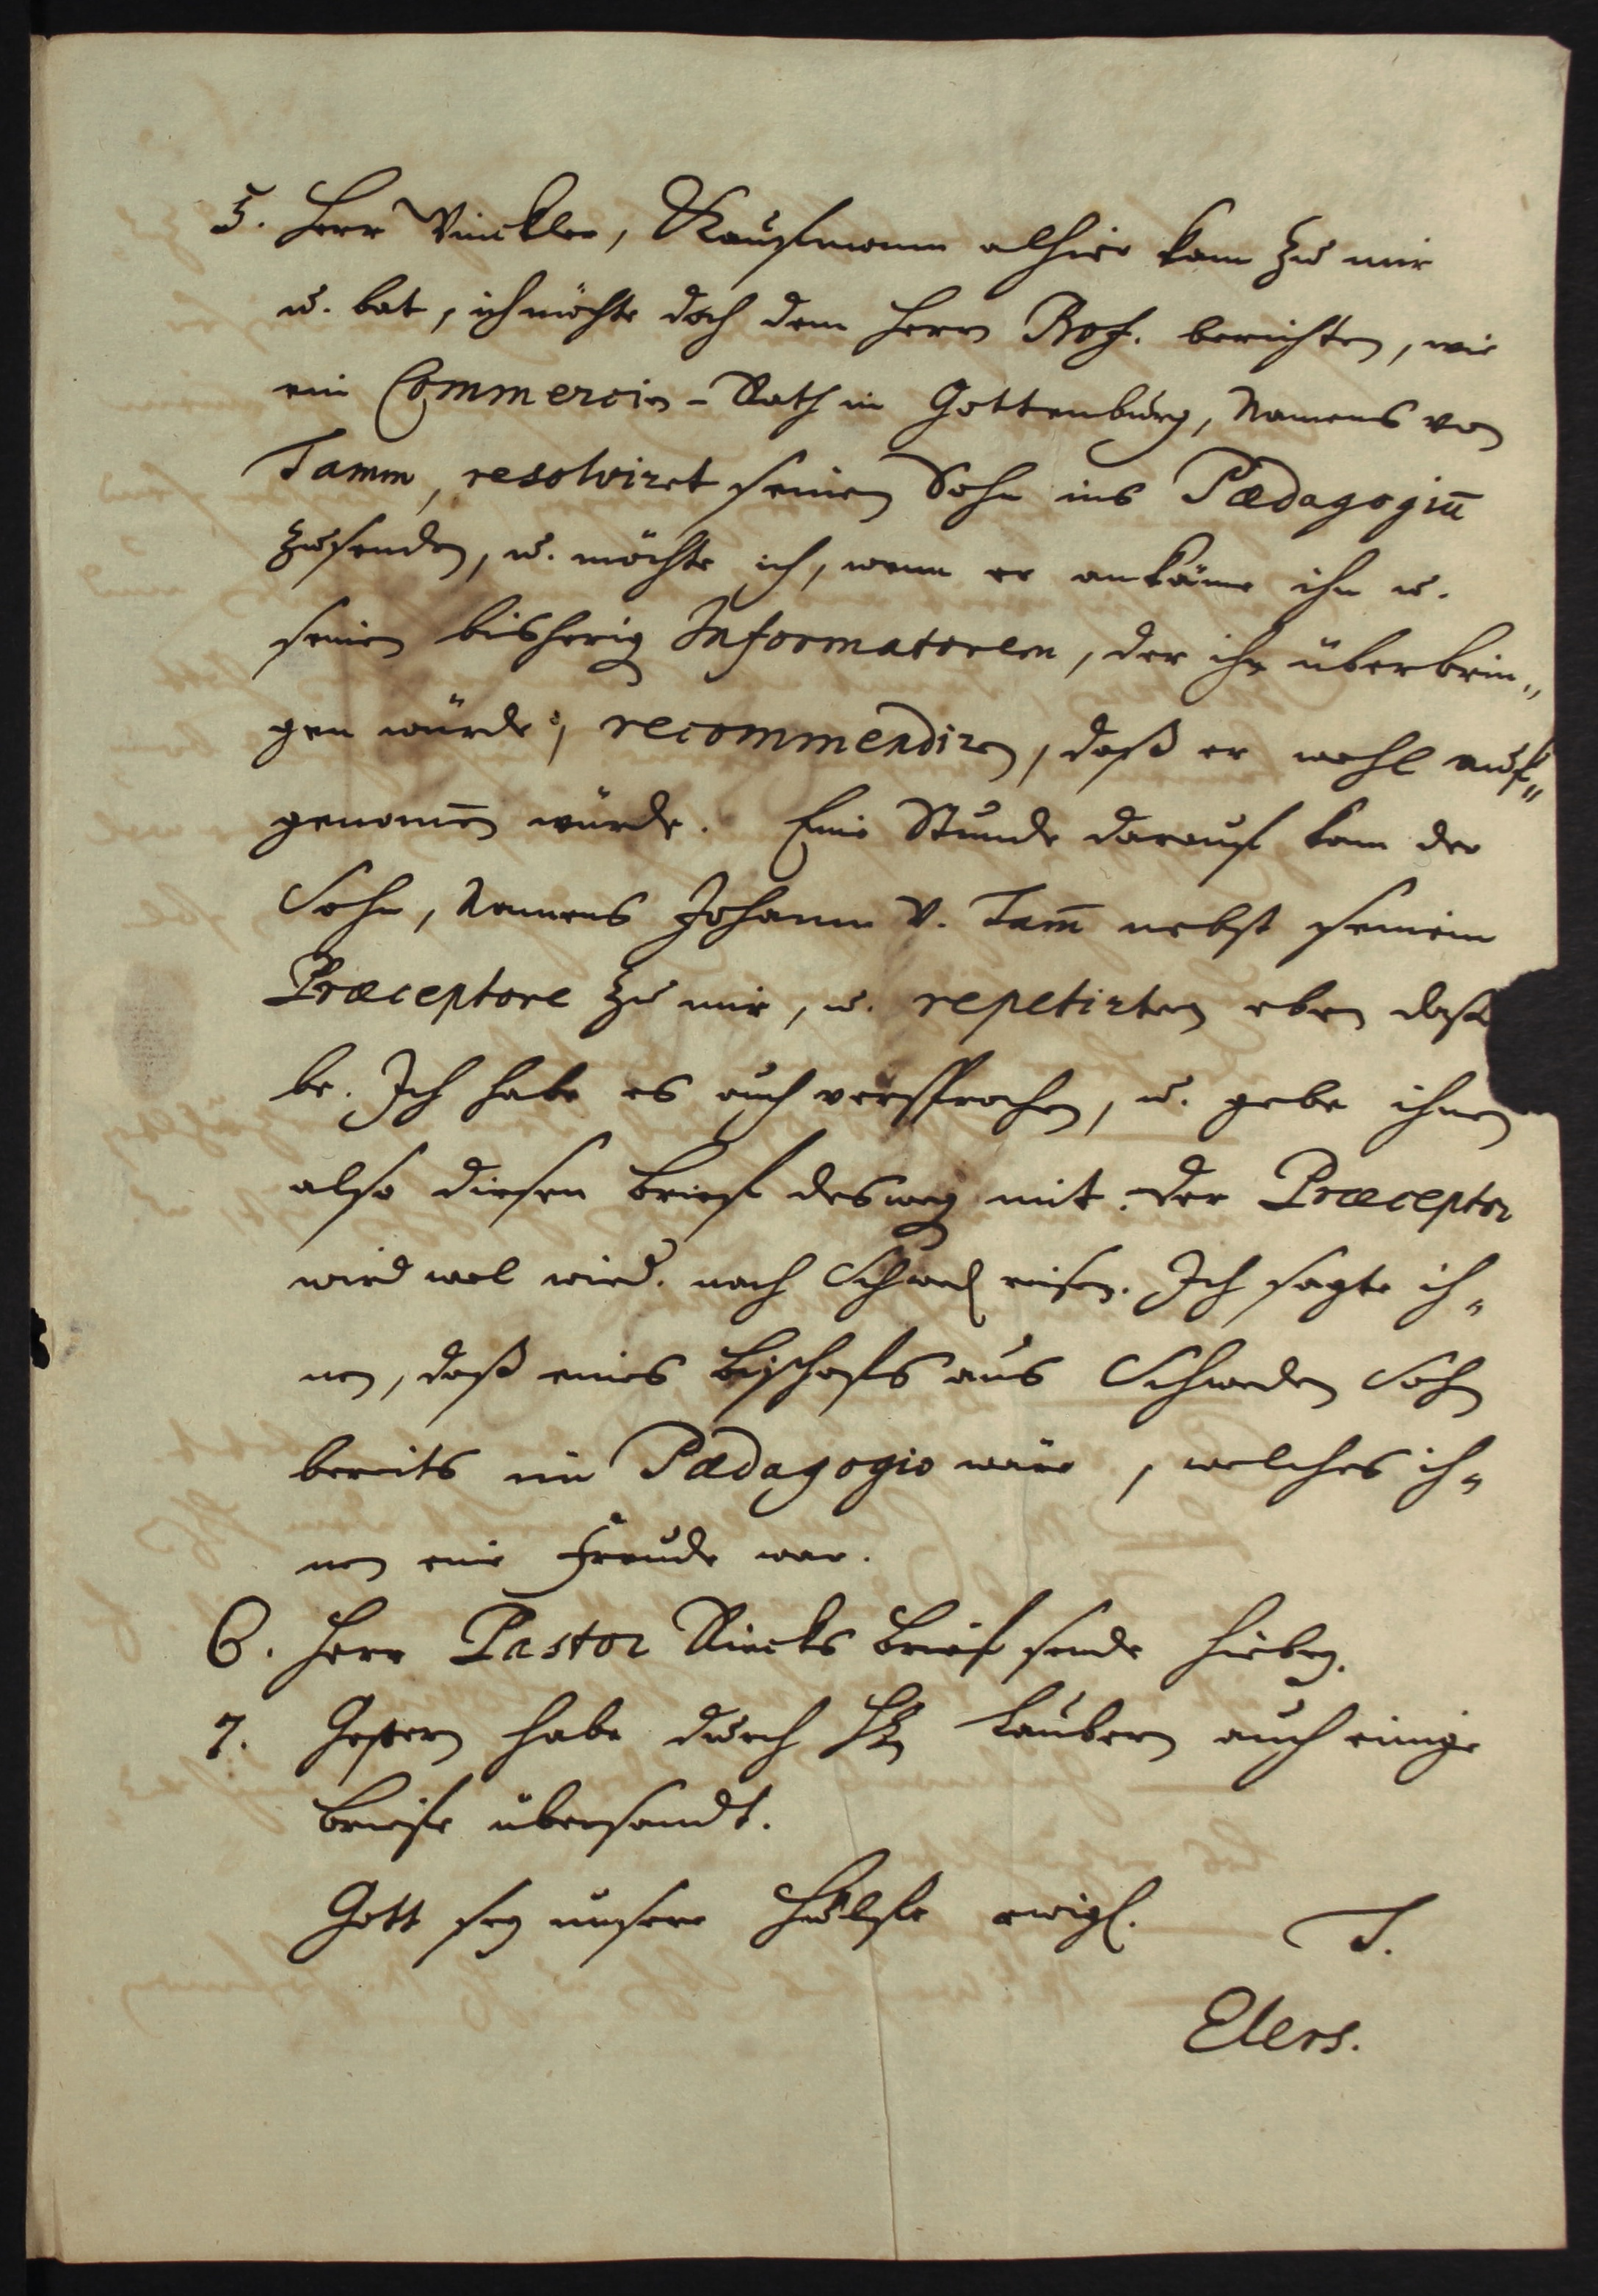 5. Herr Vinckler, Kauffmann alhier kam zu mir
u. bat, ich möchte doch dem Herrn Prof. berichten, wie
ein Commercien-Rath in Gottenburg, Namens von
Tamm, resolviret seinen Sohn ins Pædagogiū
zusenden, u. möchte ich, wenn er ankäme ihn u.
seinen bisherig Informatorem, der ihn überbrin„
gen würde, recommendiren, daß er wohl auf„
genom̄en würde. Eine Stunde darauf kam der
Sohn, Namens Johann v. Tam̄ nebst seinem
Præceptore zu mir, u. repetirten eben dassel
be. Ich habe es auch versprochen, u. gebe ihnen
also diesen Brief desweg mit. Der Præceptor
wird wol wied. nach Schwed reisen. Ich sagte ih„
nen, daß eines Bischofs aus Schweden Sohn
bereits im Pædagogio wäre, welches ih„
nen eine Freude war.
6. Herr Pastor Riecks Brief sende hiebey.
7. Gestern habe durch H. Laubern auch einige
Briefe übersandt.
Gott sey unsere Hülffe ewigl. T.
Elers.